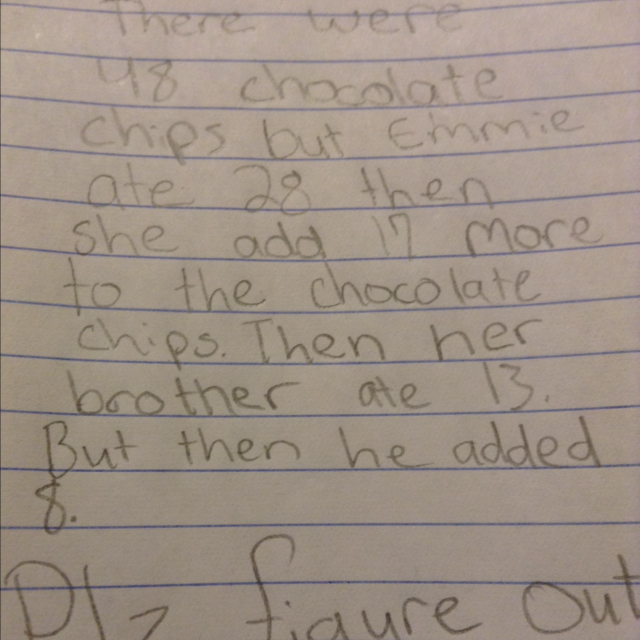 There were
48 chocolate
chips but Emmie
ate 28 then
she add 17 more
to the chocolate
chips. Then her
brother ate 13.
But then he added
8.
Plz figure out